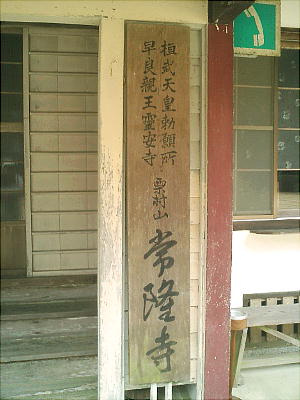 桓武天皇勅願所
早良親王霊安寺
栗村山
常隆寺